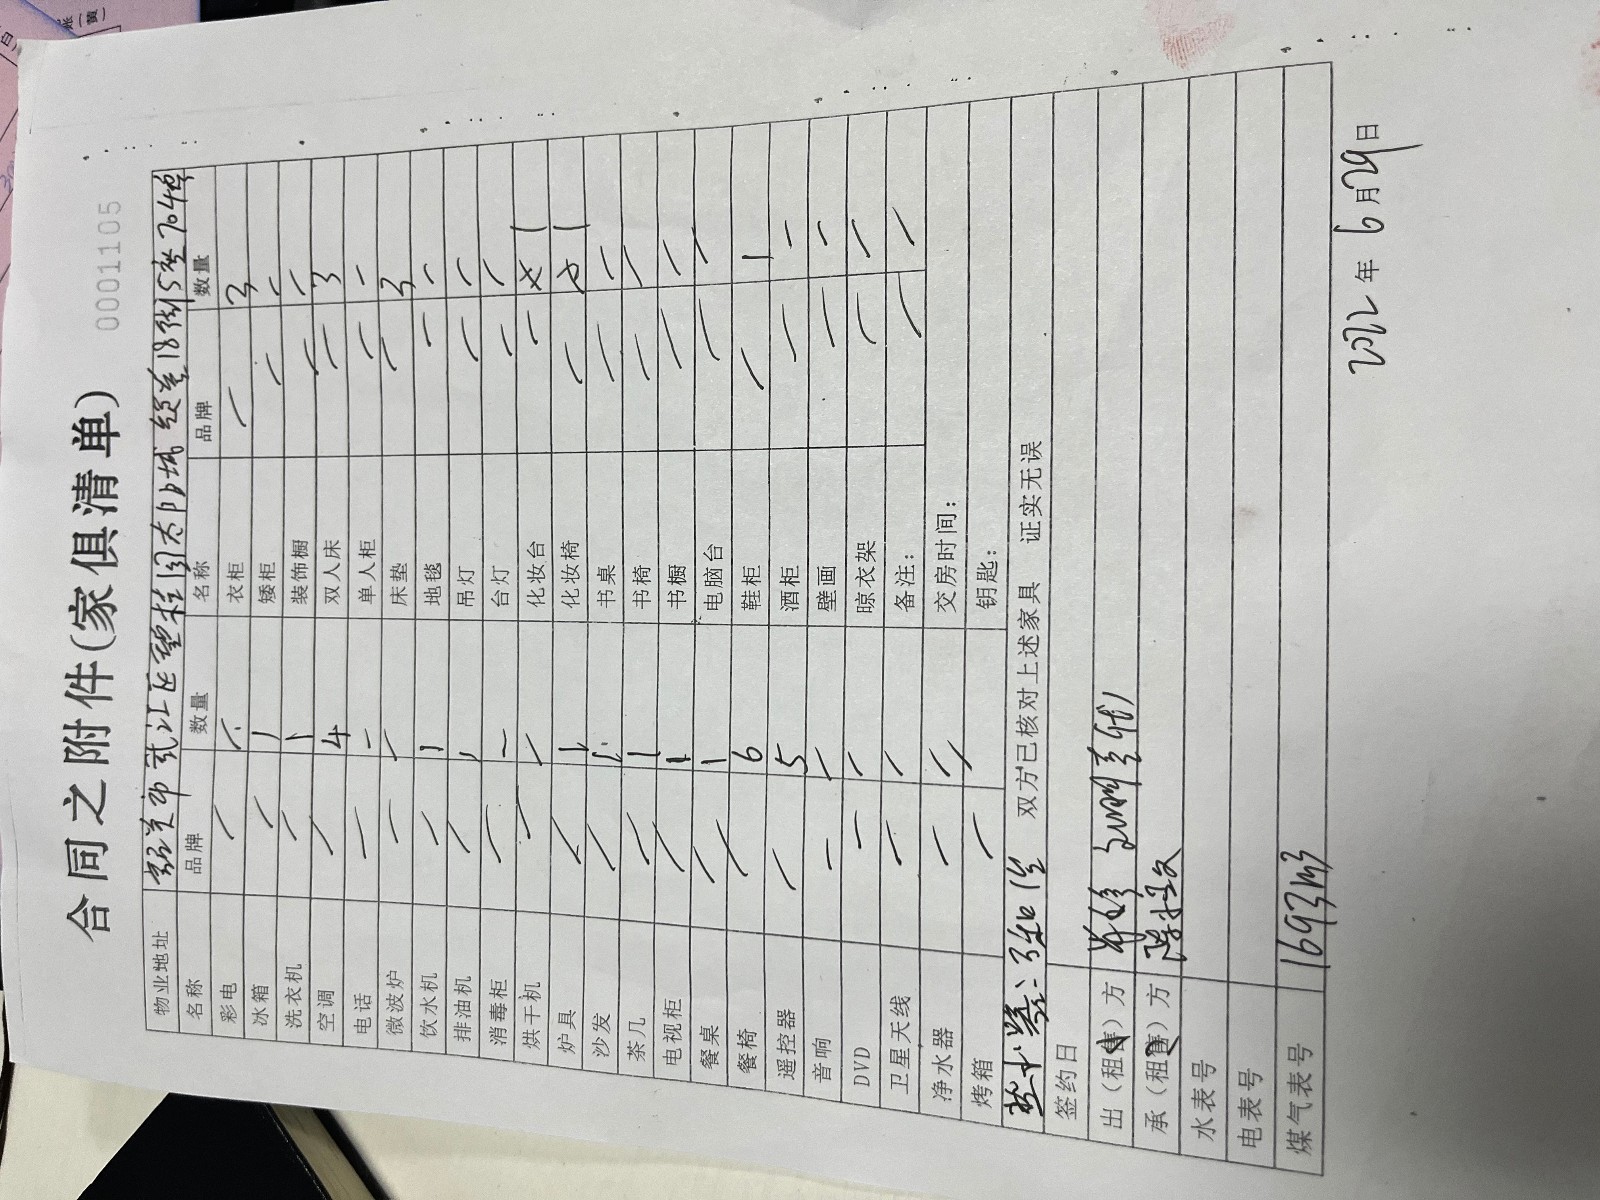 合同之附件(家俱清单)
0001105
物业地址 韶关市武江区 18街5座704单
名称 品牌 数量 名称 品牌 数量
彩电 / 衣柜 / 3
冰箱 / 1 矮柜 / /
洗衣机 / 1 装饰橱 / /
空调 / 4 双人床 / 3
电话 / / 单人柜 / /
微波炉 / / 床垫 / 3
饮水机 / 1 地毯 / /
排油机 / 1 吊灯 / /
消毒柜 / / 台灯 / /
烘干机 / / 化妆台 / 1
炉具 / 1 化妆椅 / 1
沙发 / 书桌 / /
茶几 / 1 书椅 / /
电视柜 / 1 书橱 / /
餐桌 / 1 电脑台 / /
餐椅 / 6 鞋柜 / 1
遥控器 / 5 酒柜 / /
音响 / / 壁画 / /
DVD / / 晾衣架 / /
卫星天线 / / 备注: / /
净水器 / / 交房时间:
烤箱 / / 钥匙:
双方已核对上述家具 证实无误
签约日
出(租售)方
承(租售)方
水表号
电表号
煤气表号 1693m3
2022年6月29日